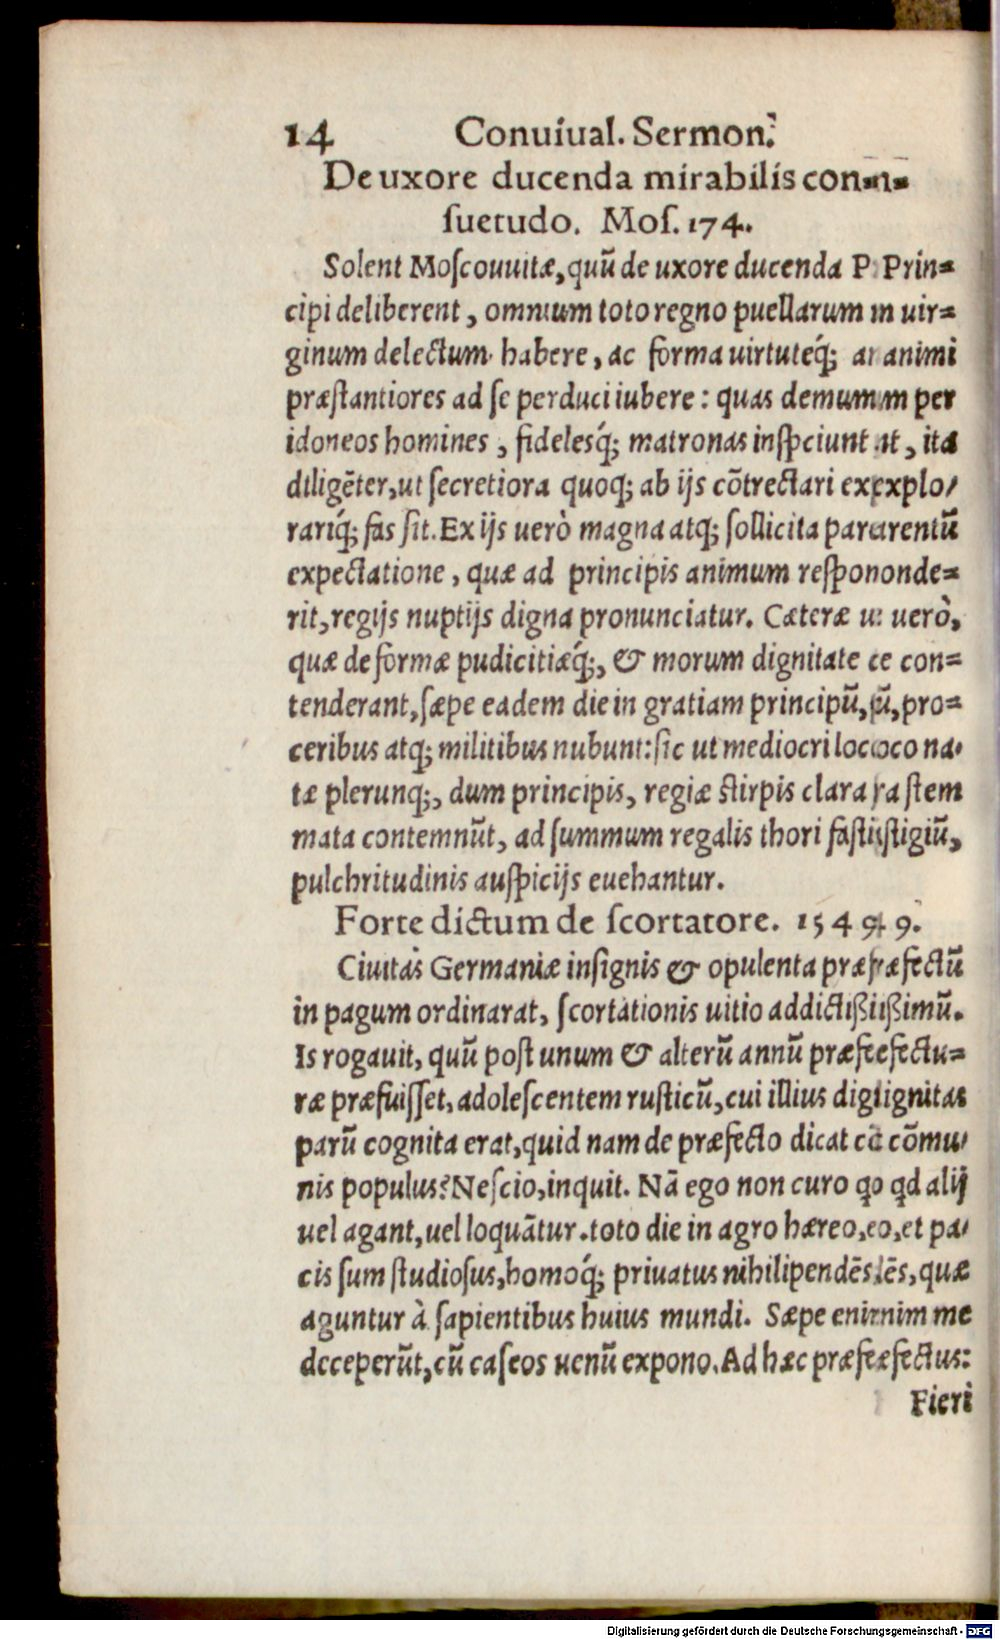 14 Conuiual. Sermon.
De uxore ducenda mirabilis con-
suetudo. Mos. 174.
Solent Moscouuitæ, quũ de uxore ducenda Prin-
cipi deliberent, omnium toto regno puellarum uir-
ginum delectum habere, ac forma uirtuteq́; animi
præstantiores ad se perduci iubere: quas demum per
idoneos homines, fidelesq́; matronas inspciunt, ita
diligẽter, ut secretiora quoq; ab ijs cõtrectari explo/
rariq́; fas sit. Ex ijs uerò magna atq; sollicita parentũ
expectatione, quæ ad principis animum responde-
rit, regijs nuptijs digna pronunciatur. Cæteræ uerò,
quæ de formæ pudicitiæq́;, & morum dignitate con-
tenderant, sæpe eadem die in gratiam principũ, pro-
ceribus atq; militibus nubunt: sic ut mediocri loco na-
tæ plerunq;, dum principis, regiæ stirpis clara stem
mata contemnũt, ad summum regalis thori fastigiũ,
pulchritudinis auspicijs euehantur.
Forte dictum de scortatore. 1549.
Ciuitas Germaniæ insignis & opulenta præfectũ
in pagum ordinarat, scortationis uitio addictißimũ.
Is rogauit, quũ post unum & alterũ annũ præfectu-
ræ præfuisset, adolescentem rusticũ, cui illius dignitas
parũ cognita erat, quid nam de præfecto dicat cõmu/
nis populus? Nescio, inquit. Nã ego non curo qd alij
uel agant, uel loquãtur. toto die in agro hæreo, et pa/
cis sum studiosus, homoq́; priuatus nihilipendẽs, quæ
aguntur à sapientibus huius mundi. Sæpe enim me
deceperũt, cũ caseos uenũ expono. Ad hæc præfectus:
Fieri
Digitalisierung gefördert durch die Deutsche Forschungsgemeinschaft - DFG